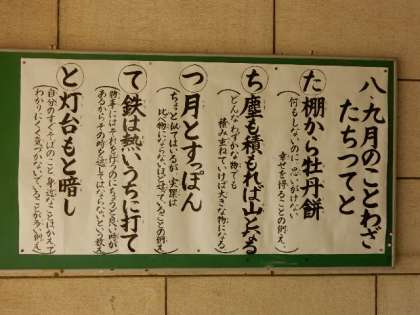 八、九月のことわざ
たちつてと
た 棚から牡丹餅
(何もしないのに思いがけない
幸せを得ることの例え。)
ち 塵も積もれば山となる
(どんなわずかな物でも
積み重ねていけば大きな物になる)
つ 月とすっぽん
(ちょっと似てはいるが実際は
比べ物にならないほど違っていることの例え)
て 鉄は熱いうちに打て
(物事にはそれを行うのにちょうど良い時が
あるからその時を逃してはならないという教え)
と 灯台もと暗し
(自分のすぐそばのこと身近なことはかえって
わかりにくく気づかないでいることが多い例え)